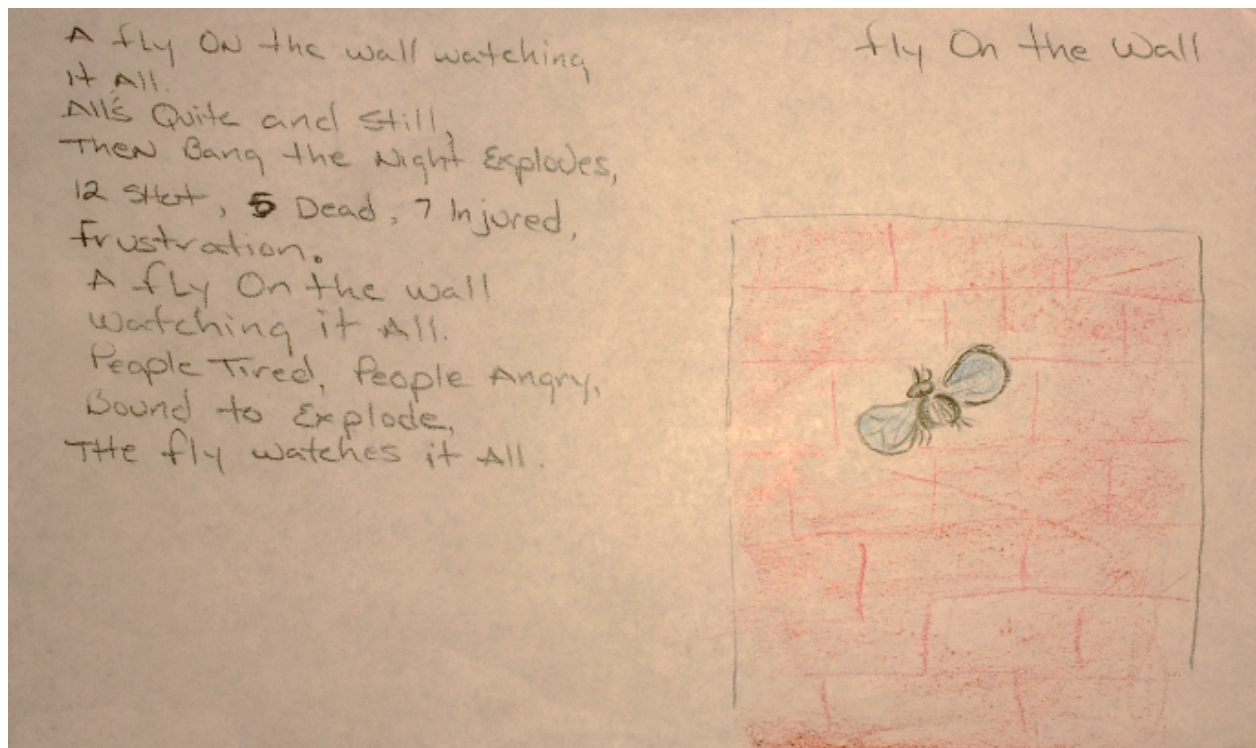 Fly On the Wall
A fly ON the wall watching
it All.
All's Quite and Still,
Then Bang the Night Explodes,
12 SHot, 5 Dead, 7 Injured,
Frustration.
A fLy On the wall
watching it All.
People Tired, People Angry,
Bound to Explode,
THe fly watches it All.